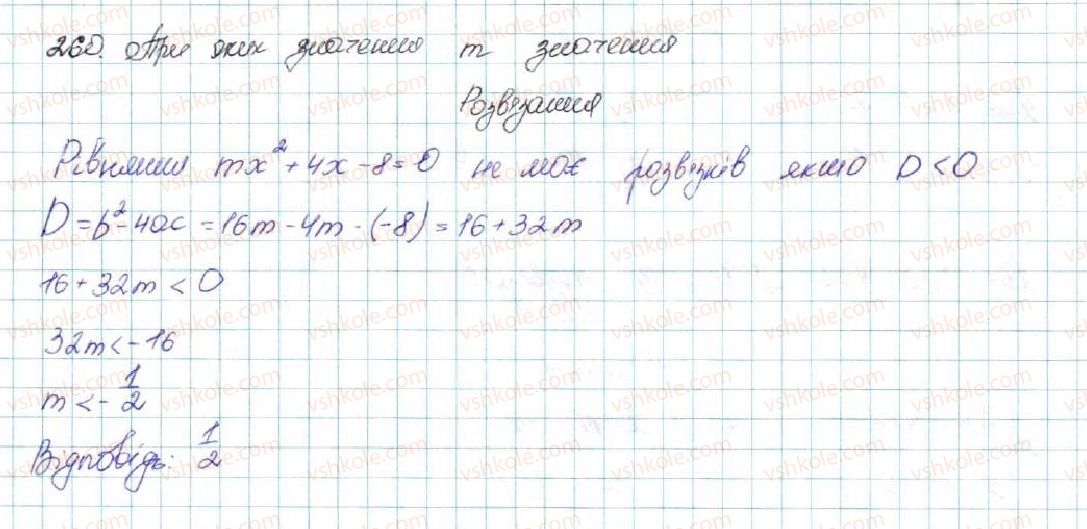 260. При яких значення m значення
Розвязання
Рівняння mx² + 4x - 8 = 0 не має розвязків якшо D < 0
D = b² - 4ac = 16m - 4m · (-8) = 16 + 32m
16 + 32m < 0
32m < - 16
m < - 1/2
Відповідь: 1/2